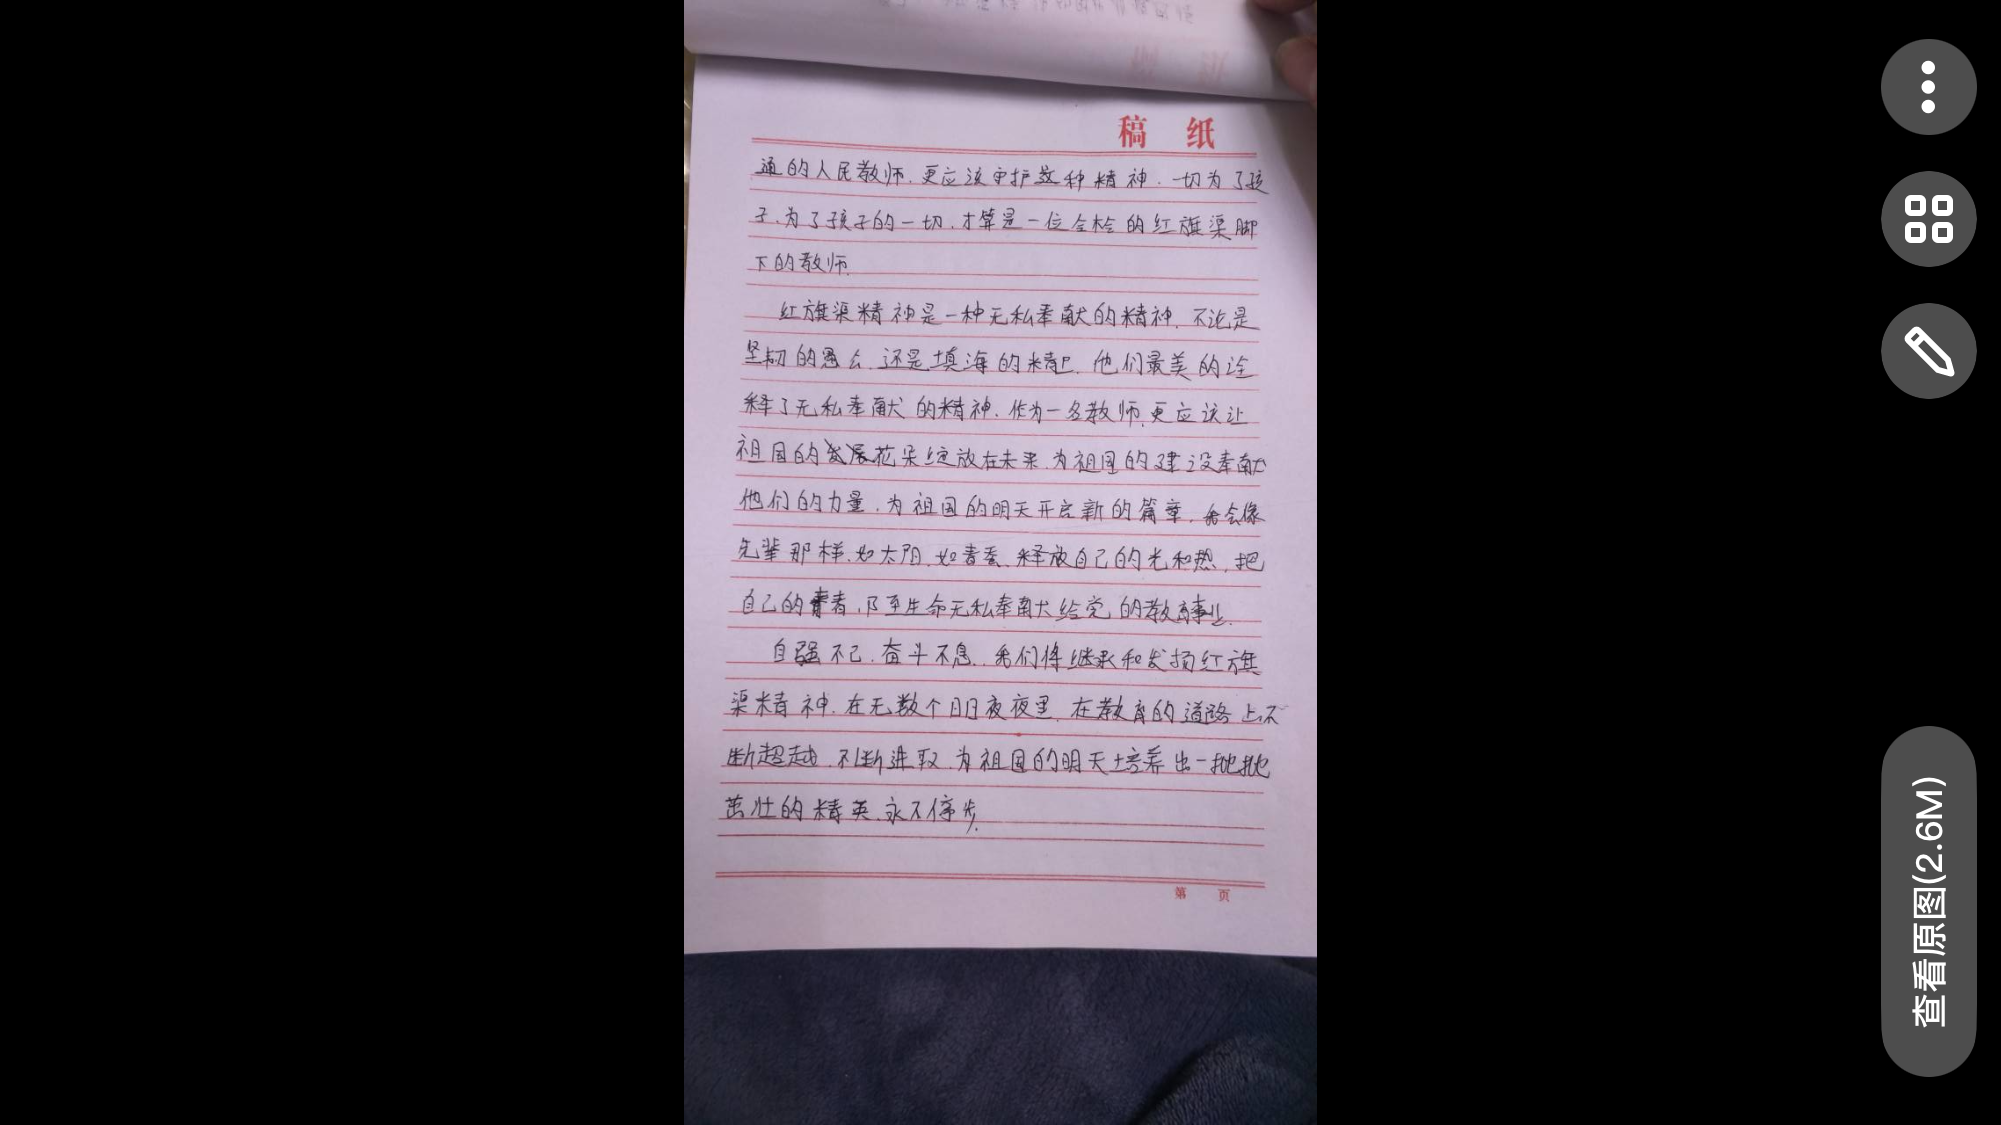 稿 纸
通的人民教师,更应该守护这种精神.一切为了孩
子,为了孩子的一切,才算是一位合格的红旗渠脚
下的教师.
红旗渠精神是一种无私奉献的精神,不论是
坚韧的愚公,还是填海的精卫,他们最美的诠
释了无私奉献的精神.作为一名教师,更应该让
祖国的花朵绽放在未来,为祖国的建设奉献
他们的力量,为祖国的明天开启新的篇章,我会像
先辈那样,如太阳,如青春,释放自己的光和热,把
自己的青春,乃至生命无私奉献给党的教育事业.
自强不已,奋斗不息.我们将继承和发扬红旗
渠精神.在无数个日日夜夜里,在教育的道路上不
断超越,不断进取,为祖国的明天培养出一批批
茁壮的精英,永不停步.
第 页
查看原图(2.6M)